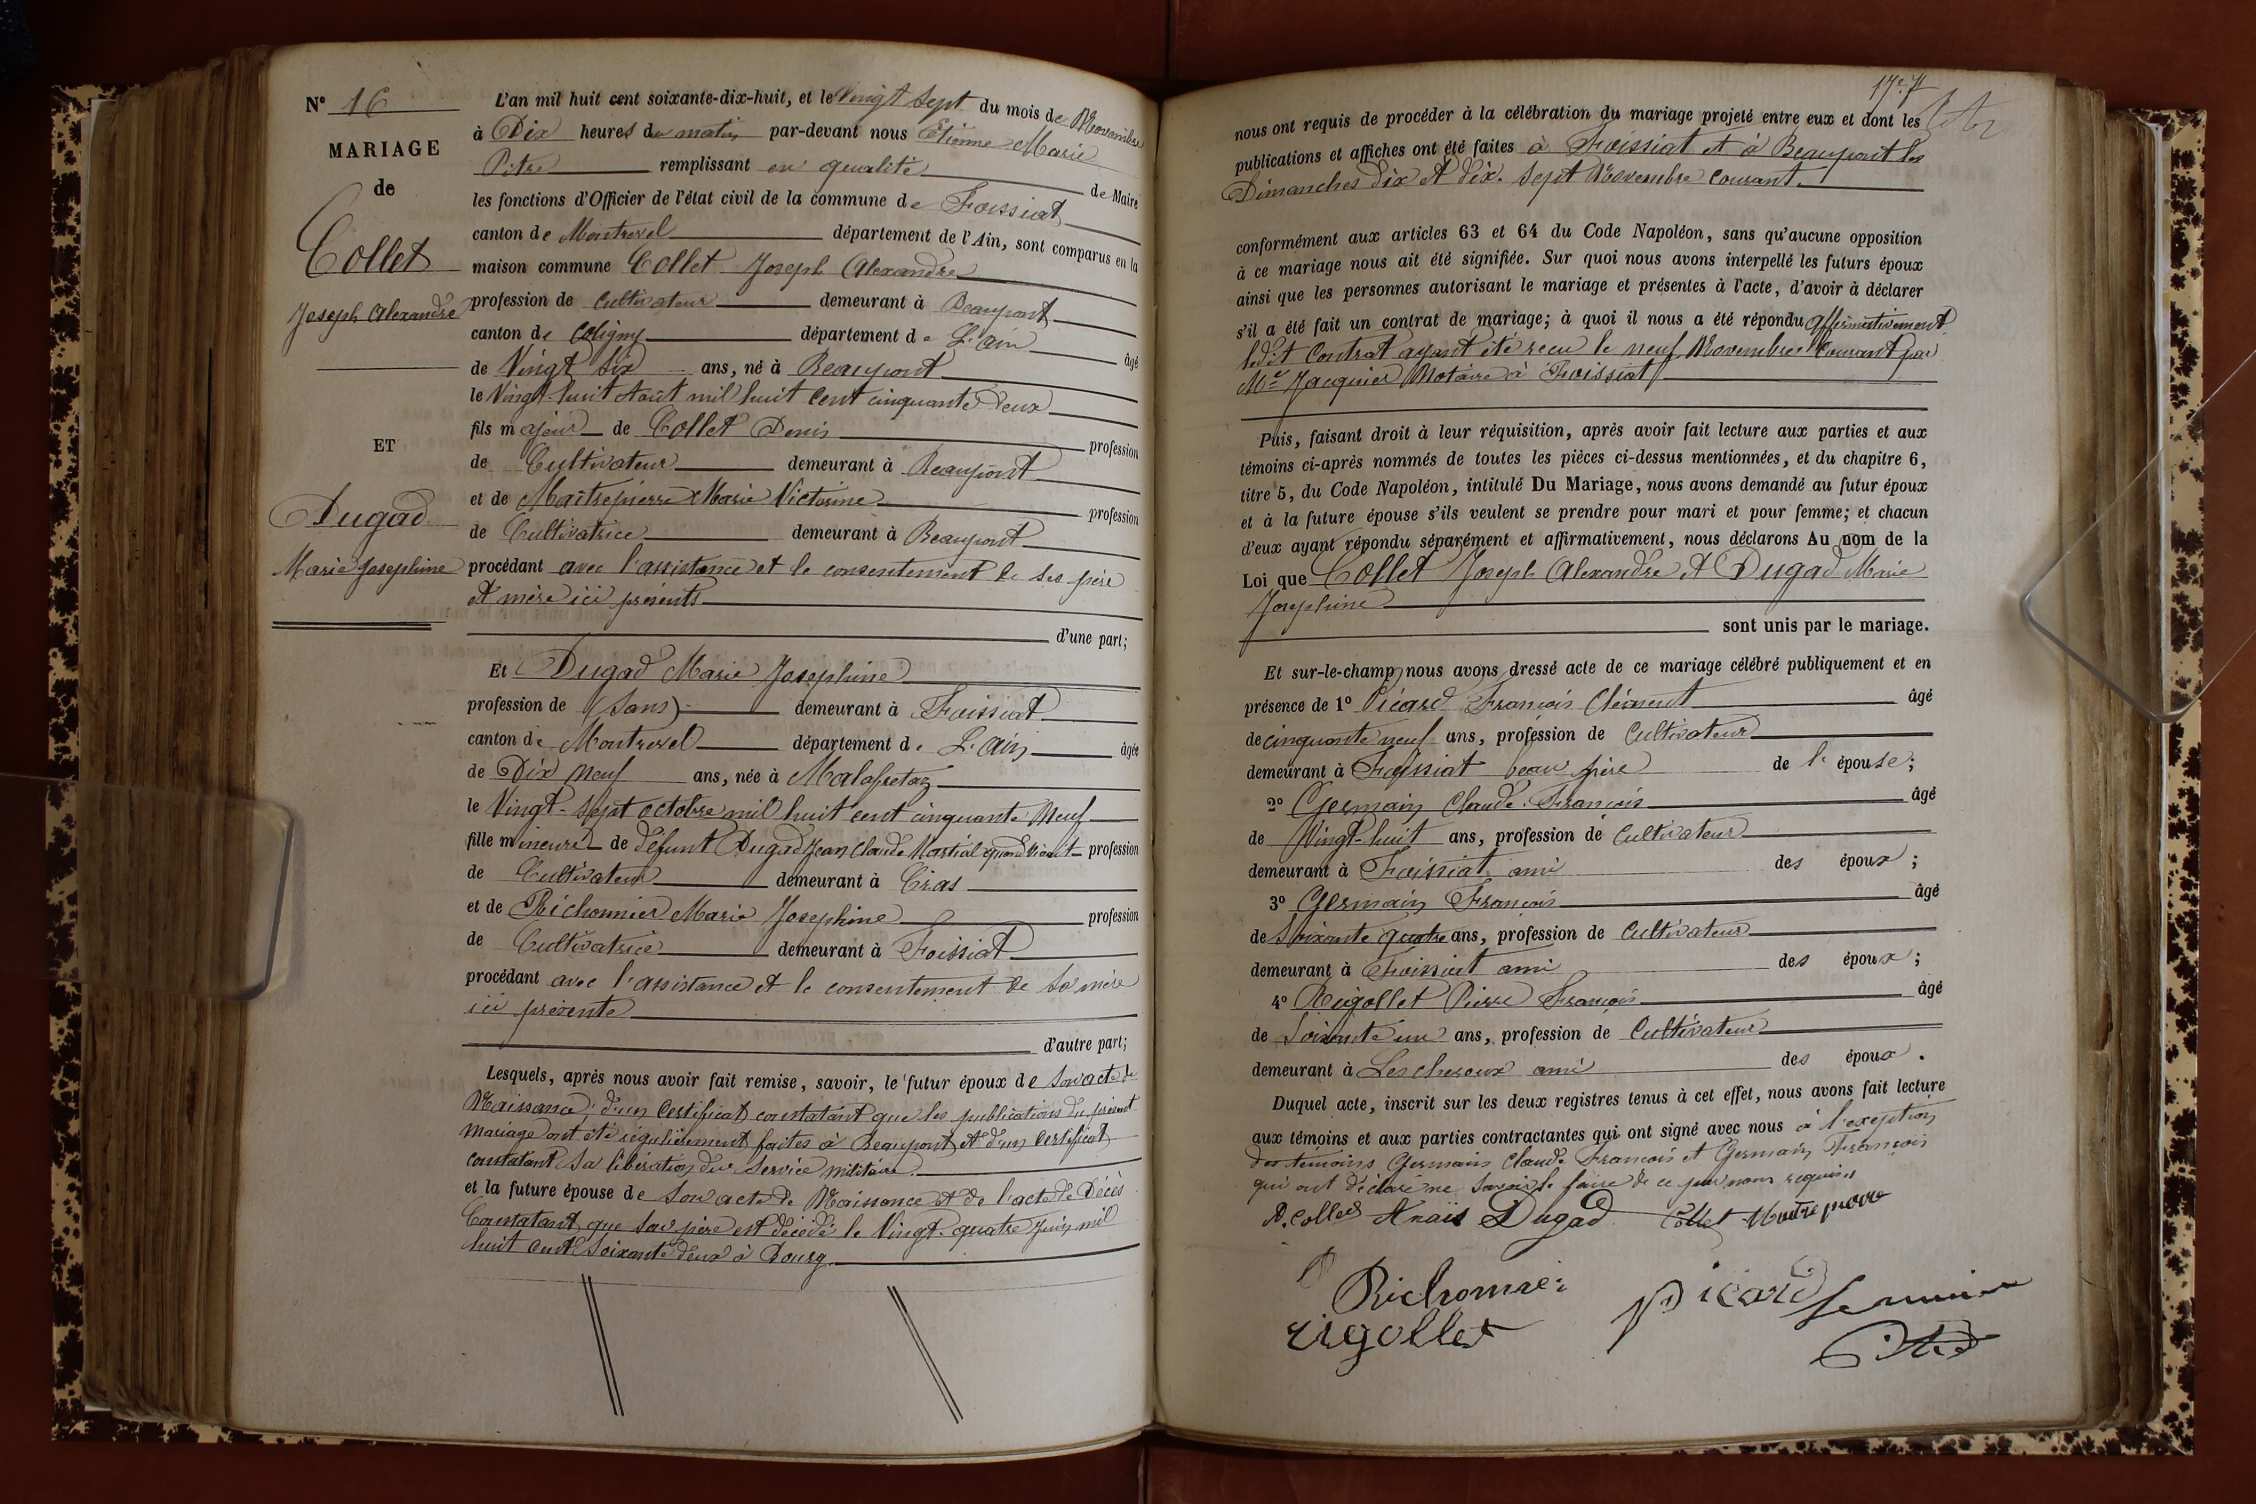 N° 16
MARIAGE
de
Collet
Joseph Alexandre
ET
Dugad
Marie Josephine
L'an mil huit cent soixante-dix-huit, et le Vingt Sept du mois de Novembre
à Dix heures du matin par-devant nous Etienne Marie
Pitre remplissant en qualité de Maire
les fonctions d'Officier de l'état civil de la commune de Foissiat
canton de Montrevel département de l'Ain, sont comparus en la
maison commune Collet Joseph Alexandre
profession de Cultivateur demeurant à Beaupont
canton de Coligny département de L'ain âgé
de Vingt Six ans, né à Beaupont
le Vingt-huit Aout mil huit cent cinquante Deux
fils majeur de Collet Denis profession
de Cultivateur demeurant à Beaupont
et de Maitrepierre Marie Victorine profession
de Cultivatrice demeurant à Beaupont
procédant avec l'assistance et le consentement de ses père
et mère ici présents
d'une part;
Et Dugad Marie Josephine
profession de (Sans) demeurant à Foissiat
canton de Montrevel département de L'Ain âgée
de Dix neuf ans, née à Malafretaz
le Vingt-sept octobre mil huit cent cinquante Neuf
fille mineure de défunt Dugad Jean Claude Martial quand vivait profession
de Cultivateur demeurant à Cras
et de Richonnier Marie Josephine profession
de Cultivatrice demeurant à Foissiat
procédant avec l'assistance et le consentement de sa mère
ici présente
d'autre part;
Lesquels, après nous avoir fait remise, savoir, le futur époux de son acte de
Naissance, d'un Certificat constatant que les publications du présent
Mariage ont été régulièrement faites à Beaupont, et d'un certificat
constatant sa libération du service militaire.
et la future épouse de son acte de Naissance et de l'acte de Décès
Constatant que son père est décédé le Vingt-quatre Juin mil
huit cent soixante deux à Bourg.
nous ont requis de procéder à la célébration du mariage projeté entre eux et dont les
publications et affiches ont été faites à Foissiat et à Beaupont les
Dimanches dix et dix-sept Novembre courant.
conformément aux articles 63 et 64 du Code Napoléon, sans qu'aucune opposition
à ce mariage nous ait été signifiée. Sur quoi nous avons interpellé les futurs époux
ainsi que les personnes autorisant le mariage et présentes à l'acte, d'avoir à déclarer
s'il a été fait un contrat de mariage; à quoi il nous a été répondu affirmativement
ledit Contrat ayant été reçu le neuf Novembre courant par
Me Jacquier Notaire à Foissiat
Puis, faisant droit à leur réquisition, après avoir fait lecture aux parties et aux
témoins ci-après nommés de toutes les pièces ci-dessus mentionnées, et du chapitre 6,
titre 5, du Code Napoléon, intitulé Du Mariage, nous avons demandé au futur époux
et à la future épouse s'ils veulent se prendre pour mari et pour femme; et chacun
d'eux ayant répondu séparément et affirmativement, nous déclarons Au nom de la
Loi que Collet Joseph Alexandre et Dugad Marie
Josephine
sont unis par le mariage.
Et sur-le-champ nous avons dressé acte de ce mariage célébré publiquement et en
présence de 1° Picard François Clément âgé
de cinquante neuf ans, profession de Cultivateur
demeurant à Foissiat beau père de l'épouse;
2° Germain Claude François âgé
de Vingt-huit ans, profession de Cultivateur
demeurant à Foissiat ami des époux;
3° Germain François âgé
de Soixante quatre ans, profession de Cultivateur
demeurant à Foissiat ami des époux;
4° Rigollet Pierre François âgé
de Soixante un ans, profession de Cultivateur
demeurant à Lescheroux ami des époux.
Duquel acte, inscrit sur les deux registres tenus à cet effet, nous avons fait lecture
aux témoins et aux parties contractantes qui ont signé avec nous à l'exeption
des témoins Germain Claude François et Germain François
qui ont déclaré ne savoir le faire de ce par nous requis
A. Collet Anais Dugad Collet Maitrepierre
Richonnier Picard
rigollet Pitre